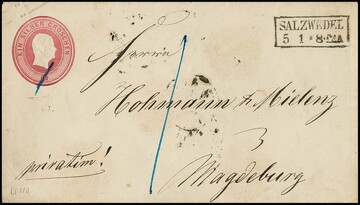 EIN SILBER GROSCHEN
SALZWEDEL
5 1 * 8-9M
Herrn
Hohmann & Mielenz
privatim!
Magdeburg